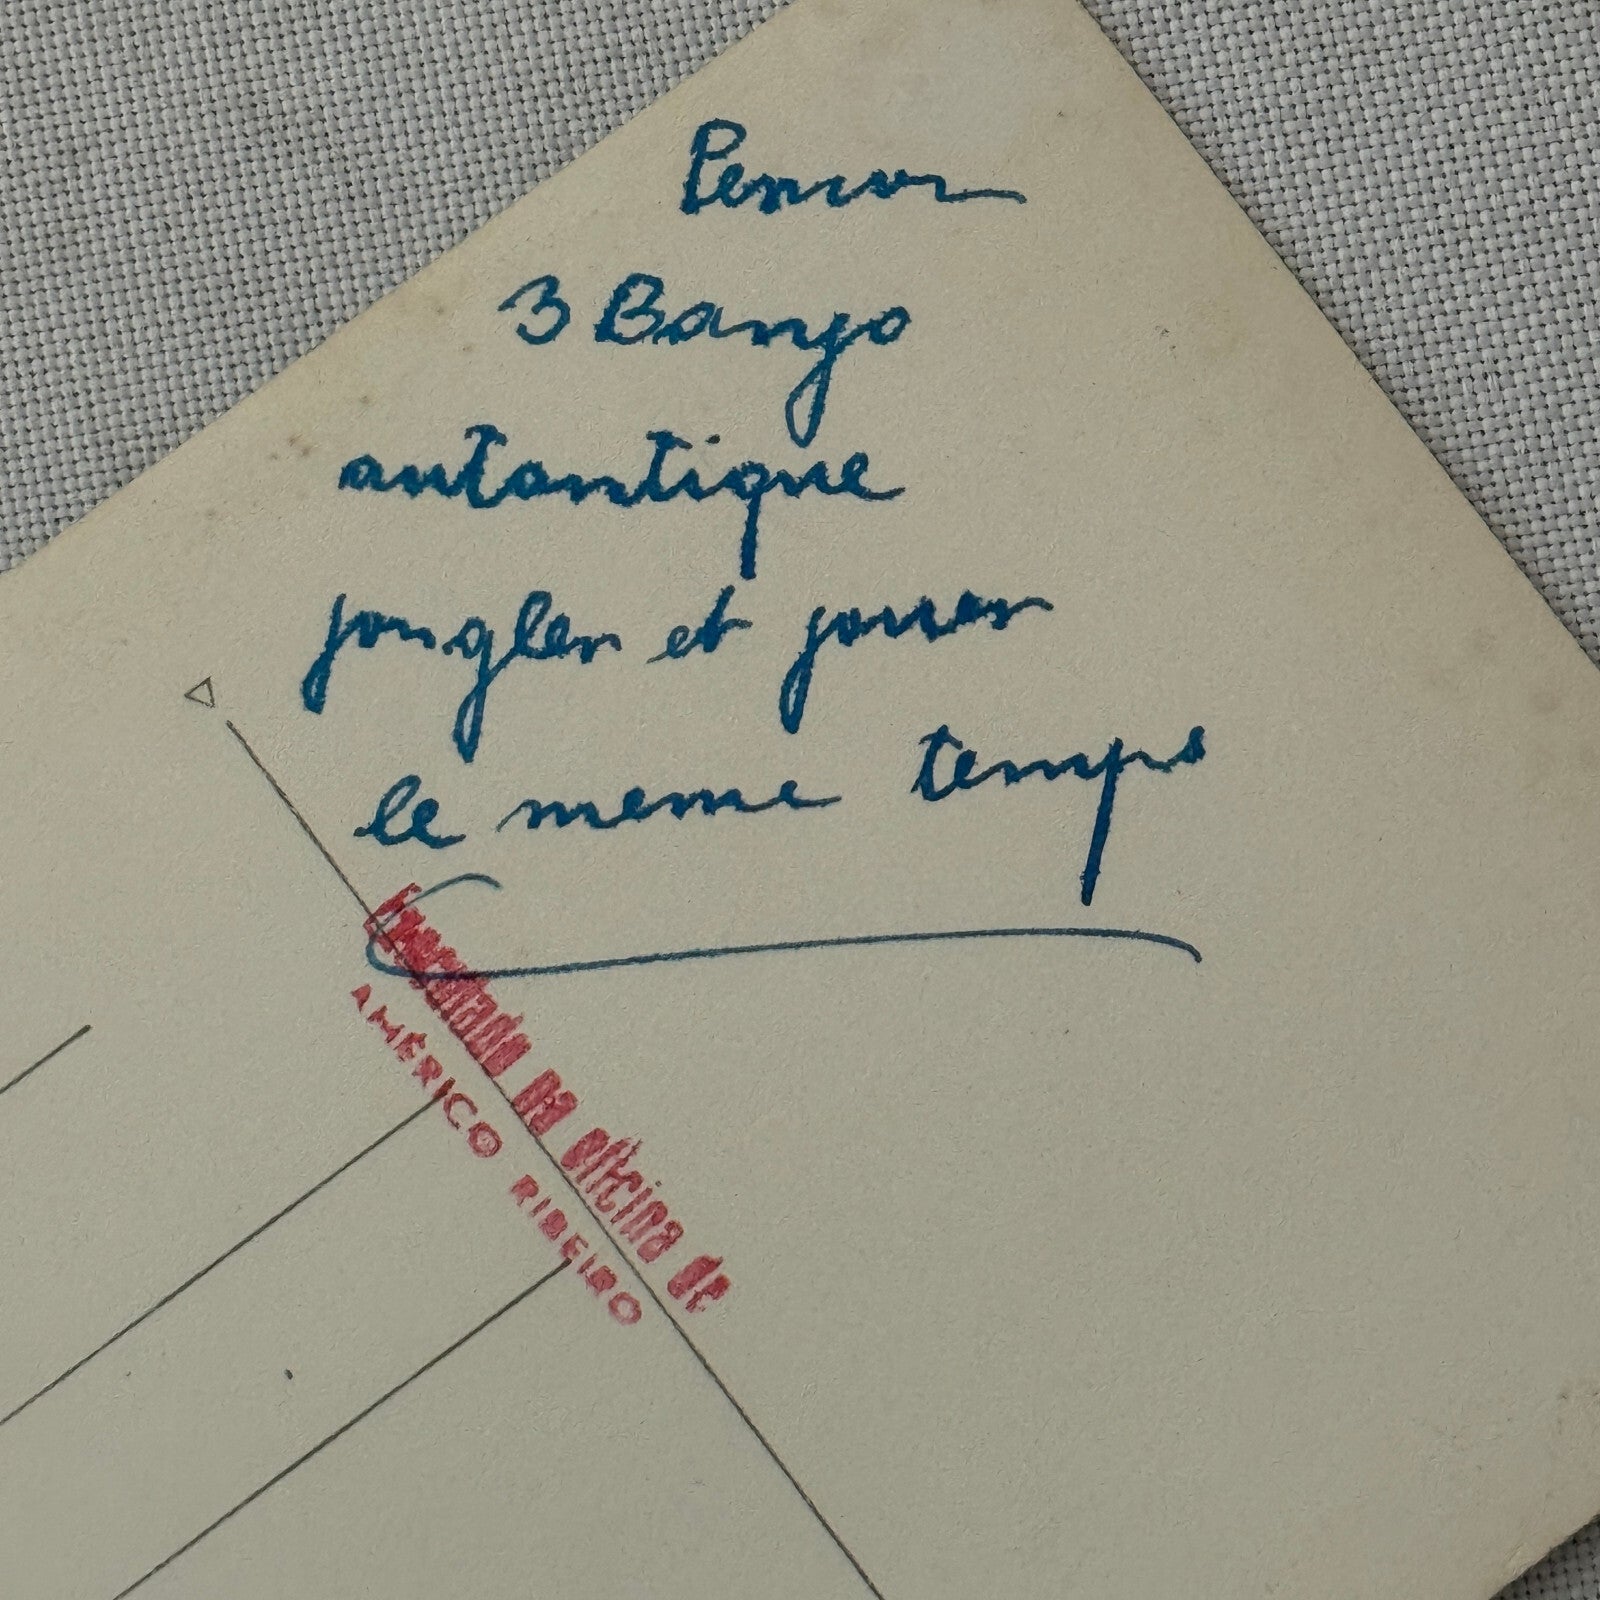 3 Banjo
autantique
jongler et jouer
le meme temps
na oficina de
AMÉRICO RIBEIRO